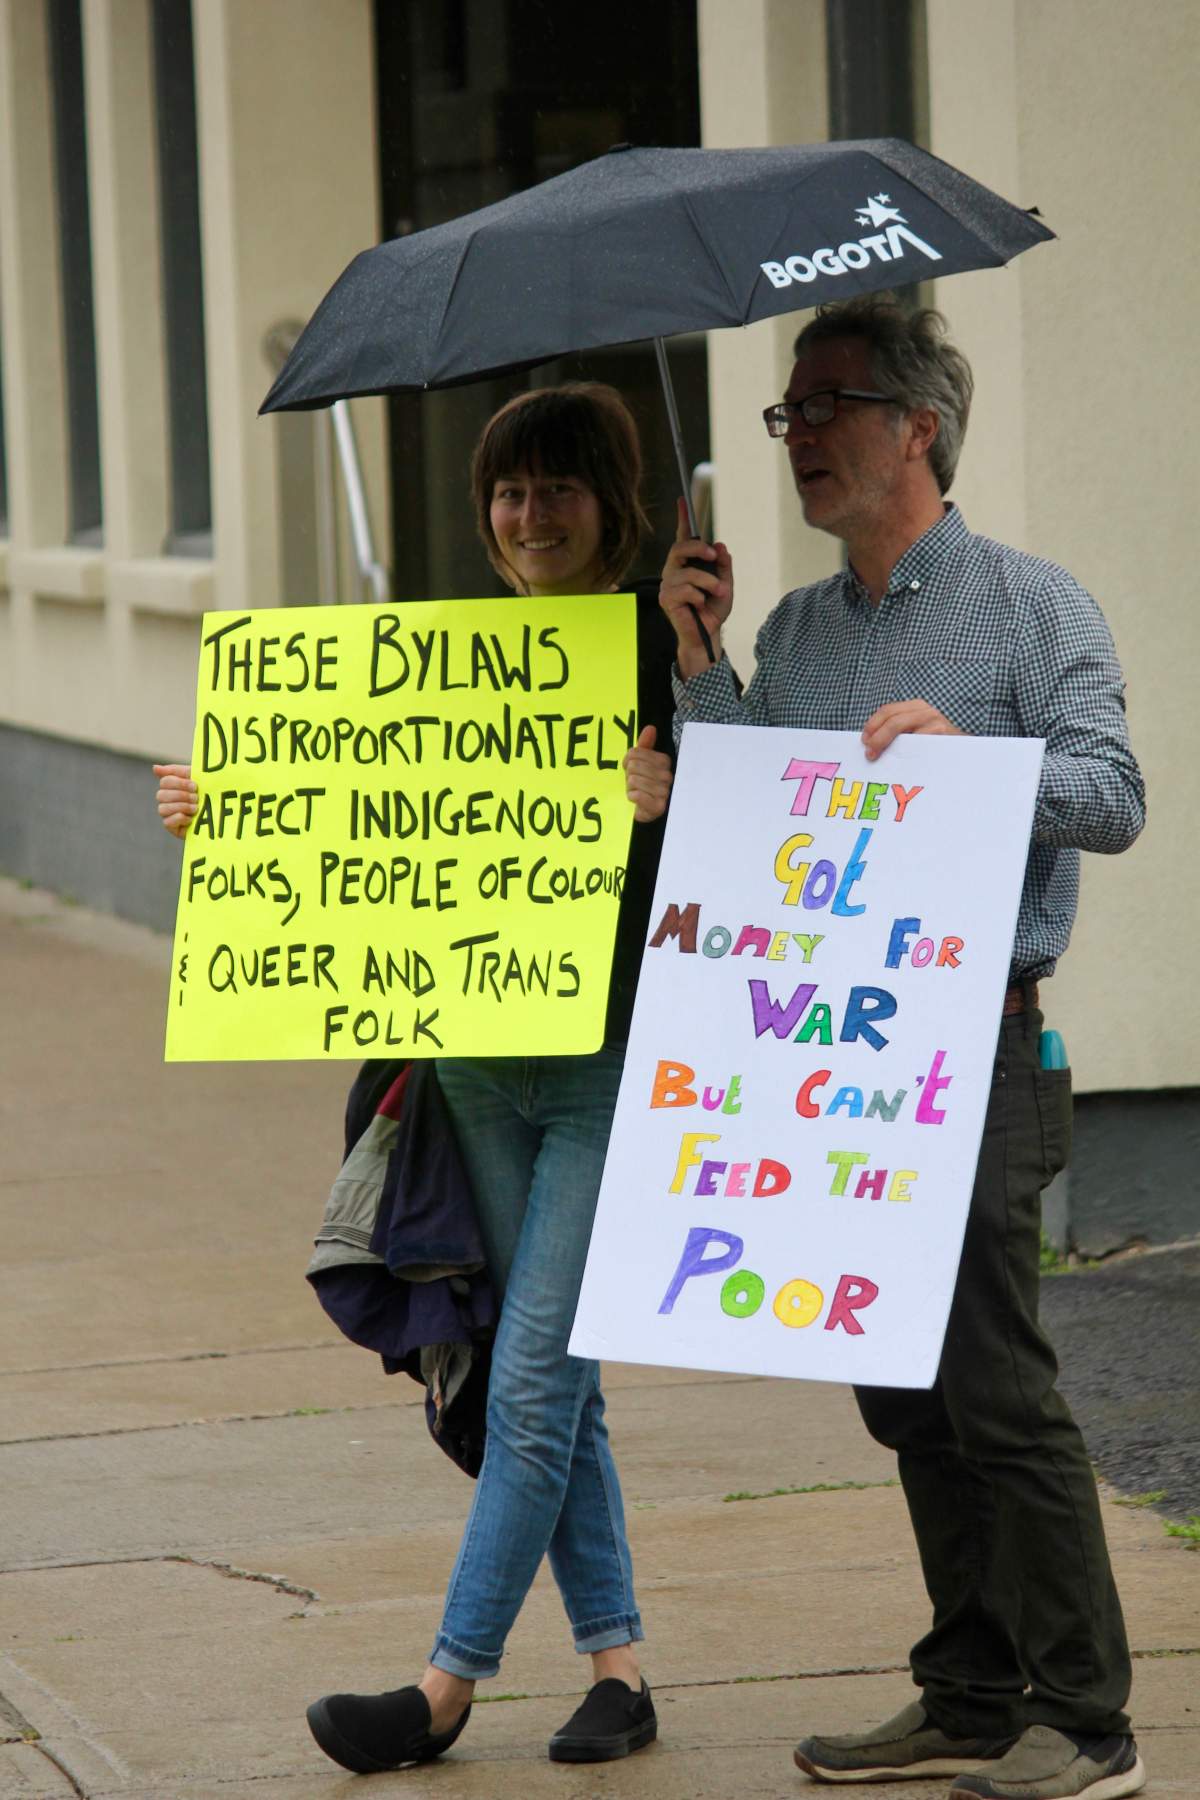 BOGOTA
THESE BYLAWS
DISPROPORTIONATELY
AFFECT INDIGENOUS
FOLKS, PEOPLE OF COLOUR
QUEER AND TRANS
FOLK
THEY
GOt
MONEY FOR
WAR
BUt CAN't
FEED THE
POOR